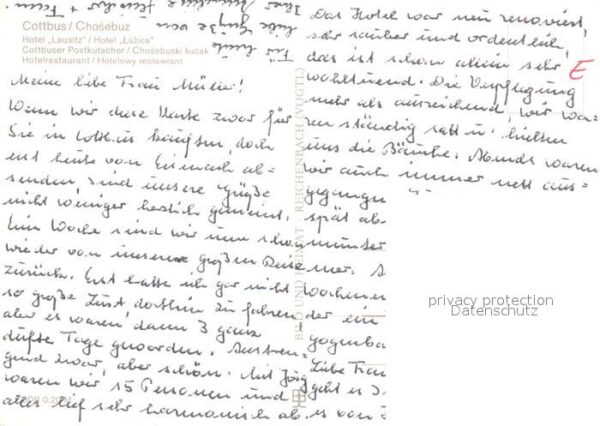 Cottbus / Chośebuz
Hotel „Lausitz" / Hotel „Łužica"
Cottbuser Postkutscher / Chośebuski kučak
Hotelrestaurant / Hotelowy restawrant
Meine liebe Frau Müller!
Wenn wir diese Karte zwar für
Sie in Cottbus kauften, doch
erst heute von Eisenach ab-
senden, sind unsere Grüße
nicht weniger herzlich gemeint.
Eine Woche sind wir nun schon
wieder von unserer großen Reise
zurück. Erst hatte ich gar nicht
so große Lust, dorthin zu fahren,
aber es waren dann 3 ganz
dufte Tage geworden. Anstren-
gend zwar, aber schön. Mit Jörg
waren wir 15 Personen und
alles lief sehr harmonisch ab.
BILD UND HEIMAT REICHENBACH (VOGTL)
Das Hotel war neu renoviert,
sehr sauber und ordentlich,
das ist schon allein sehr
wohltuend. Die Verpflegung
mehr als ausreichend, wir wa-
ren ständig satt u. hielten
uns die Bäuche. Abends waren
wir auch immer nett aus-
gegangen
spät ab
munter
Wochenen
der ein
Liebe Frau
geht es
es von
E
privacy protection
Datenschutz
Für heute
liebe Grüße von
Ihrer